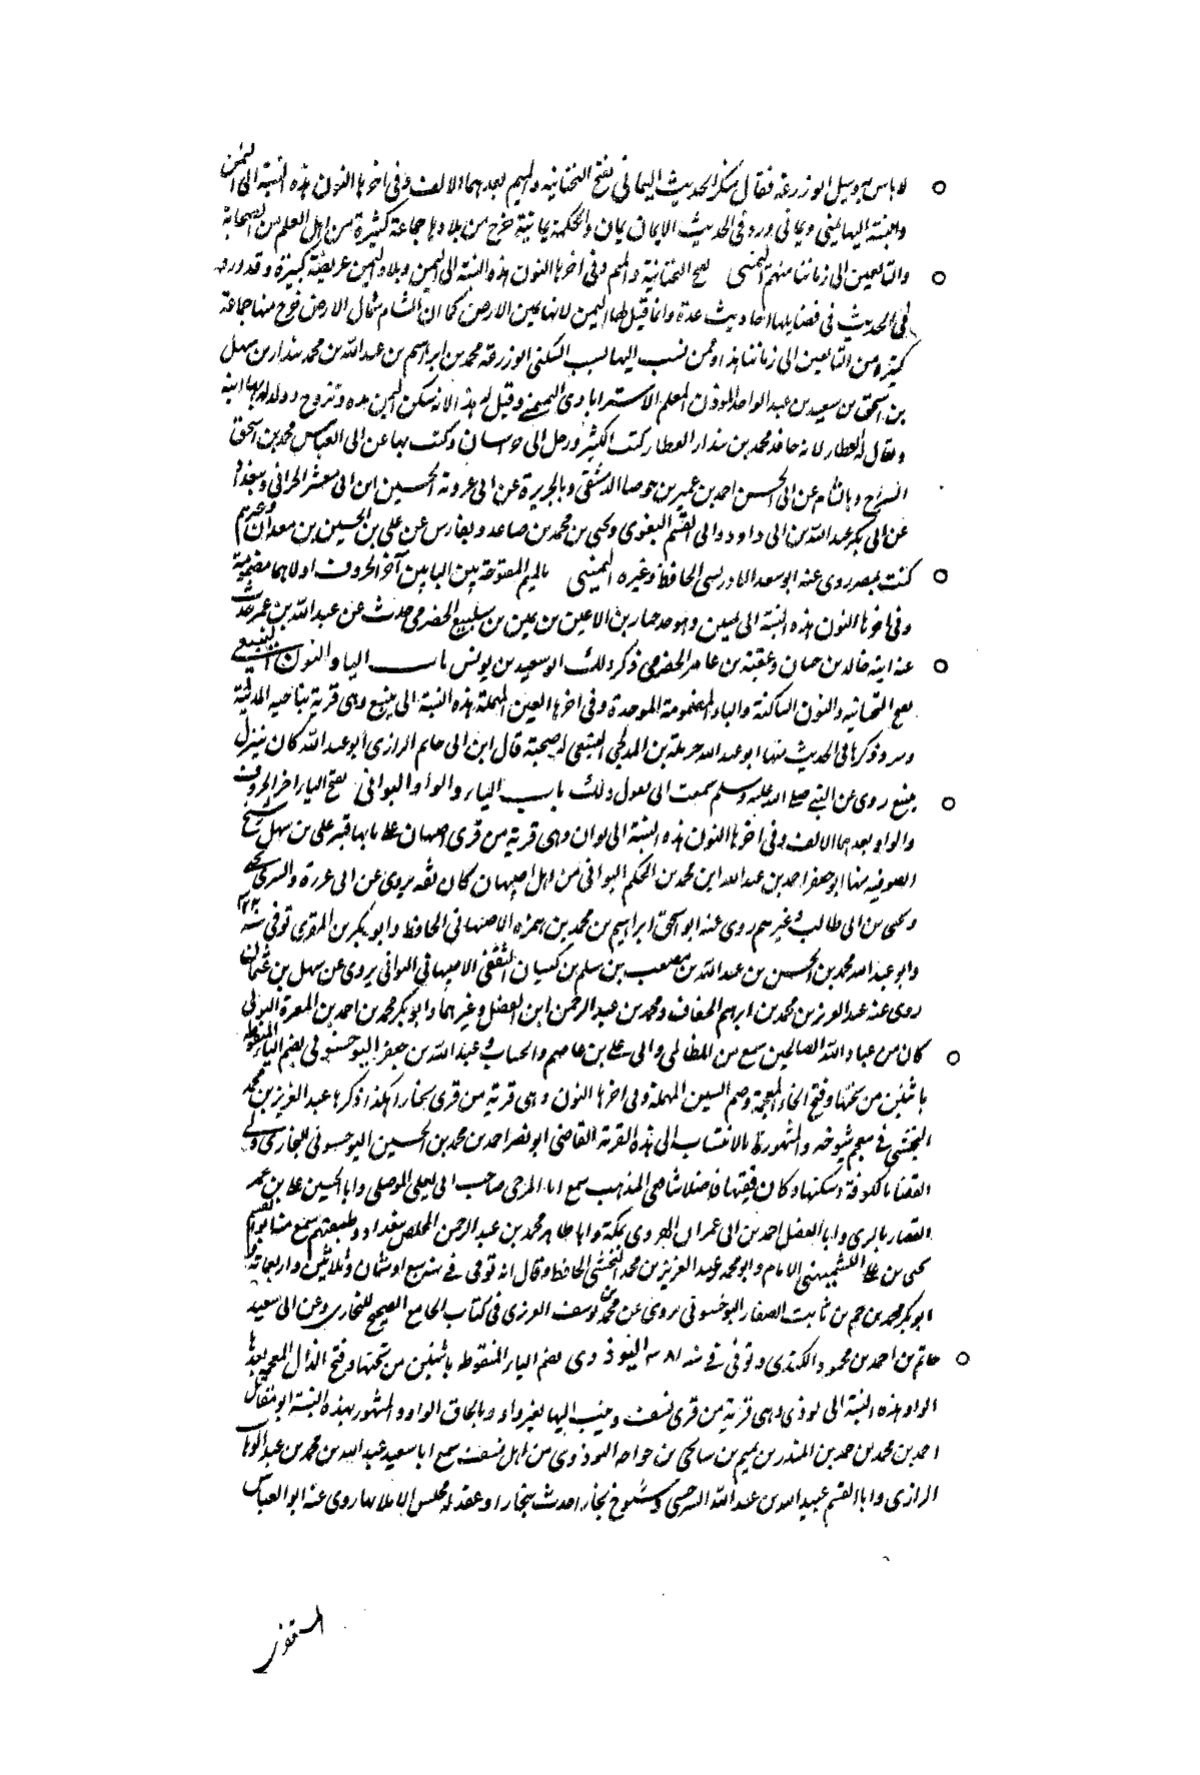 لا باس به وسيل ابو زرعة فقال منكر الحديث اليماني بفتح التحتانية والميم بعدهما الالف وفي اخرها النون هذه النسبة الى اليمن
والنسبة اليها يمني ويماني ورد في الحديث الايمان يمان والحكمة يمانية خرج من بلادها جماعة كثيرة من اهل العلم من الصحابة
والتابعين الى زماننا منهم اليمني بفتح التحتانية والميم وفي اخرها النون هذه النسبة الى اليمن وبلاد اليمن عريضة كبيرة وقد ورد
في الحديث في فضايلها احاديث عدة وانما قيل لها اليمن لانها يمين الارض كما ان الشام شمال الارض خرج منها جماعة
كثيرة من التابعين الى زماننا هذا وممن نسب اليها لسبب السكنى ابو زرعة محمد بن ابراهيم بن عبد الله بن محمد بندار بن سهل
بن اسحق بن سعيد بن عبد الواحد الموذن المعلم الاستراباذي اليمني وقيل له هذا لانه سكن اليمن مدة وتزوج وولد له بها ابنة
ويقال له العطار لانه حافد محمد بن بندار العطار كتب الكثير ورحل الى خراسان وكتب بها عن ابي العباس محمد بن اسحق
السراج وبالشام عن ابي الحسن احمد بن عمير بن جوصا الدمشقي وبالجزيرة عن ابي عروبة الحسين ابن ابي معشر الحراني وببغداد
عن ابي بكر عبد الله بن ابي داود وابي القسم البغوي ويحيى بن محمد بن صاعد وبفارس عن علي بن الحسين بن معدان وغيرهم
كتب بمصر روى عنه ابو سعد الادريسي الحافظ وغيره اليميني بالميم المفتوحة بين اليايين آخر الحروف اولاهما مضمومة
وفي اخرها النون هذه النسبة الى يمين وهو جد حمار بن الاعين بن يمين بن سليبيع الحضرمي حدث عن عبد الله بن عمر حدث
عنه ابنه خالد بن حمان وعقبة بن عامر الحضرمي ذكر ذلك ابو سعيد بن يونس باب اليا والنون الينبعي
بفتح التحتانية والنون الساكنة والباء المضمومة الموحدة وفي اخرها العين المهملة هذه النسبة الى ينبع وهي قرية بناحية المدينة
ذكرها في الحديث منها ابو عبد الله حرملة بن المدلجي الينبعي له صحبة قال ابن ابي حاتم الرازي ابو عبد الله كان ينزل
بينبع روى عن النبي صلى الله عليه وسلم سمعت ابي يقول ذلك باب الياء والواو اليواني بفتح الياء اخر الحروف
والواو بعدهما الالف وفي اخرها النون هذه النسبة الى يوان وهي قرية من قرى اصبهان على بابها قبر علي بن سهل شيخ
الصوفية منها ابو جعفر احمد بن عبد الله ابن محمد بن الحكم اليواني من اهل اصبهان كان ثقة يروي عن ابي غرزة والسري بن يحيى
ويحيى بن ابي طالب وغيرهم روى عنه ابو اسحق ابراهيم بن محمد بن حمزة الاصفهاني الحافظ وابو بكر بن المقري توفي سنة ٣٢٢
وابو عبد الله محمد بن الحسن بن عبد الله بن مصعب بن سلم بن كيسان الثقفي الاصبهاني اليواني يروي عن سهل بن عثمان
روى عنه عبد العزيز بن محمد بن ابرهيم الخفاف ومحمد بن عبد الرحمن ابن الفضل وغيرهما وابو بكر محمد بن احمد بن المعرة اليواني
كان من عباد الله الصالحين سمع من المطالبي وابي علي بن عاصم والحساب وعبد الله بن جعفر اليوخسوني بضم الياء المنقوطة
باثنتين من تحتها وفتح الخاء المعجمة وضم السين المهملة وفي اخرها النون وهي قرية من قرى بخارا هكذا ذكرها عبد العزيز بن محمد
النخشبي في معجم شيوخه والمشهور بالانتساب الى هذه القرية القاضي ابو نصر احمد بن محمد بن الحسين اليوخسوني البخاري ولي
القضا بالكوفة وسكنها وكان فقيها فاضلا شافعي المذهب سمع ابا المرجي صاحب ابي يعلى الموصلي وابا الحسين علي بن عمر
القصار بالري وابا الفضل احمد بن ابي عمران الهروي بمكة وابا طاهر محمد بن عبد الرحمن المخلص ببغداد وطبقتهم سمع منه ابو القسم
يحيى بن علي الكشميهني الامام وابو محمد عبد العزيز بن محمد النخشبي الحافظ وقال انه توفي في سنة سبع او ثمان وثلاثين واربعماية
ابو بكر محمد بن حم بن ثابت الصفار اليوخسوني يروي عن محمد بن يوسف الفربري في كتاب الجامع الصحيح للبخاري وعن ابي سعيد
حاتم بن احمد بن محمود الكندي وتوفي في سنه ٣٨١ اليوذوي بضم الياء المنقوطه باثنتين من تحتها وفتح الذال المعجمة بعدها
الواو هذه النسبة الى يوذى وهي قرية من قرى نسف وينسب اليها بغير واو وبالحاق الواو والمشهور بهذه النسبة ابو مقاتل
احمد بن محمد بن حمد بن المنذر بن تميم بن ساكن بن خواجه اليوذوي من اهل نسف سمع ابا سعيد عبد الله بن محمد بن عبد الوهاب
الرازي وابا القسم عبيد الله بن عبد الله السرخسي وشيوخ بخارا حدث ببخارا وعقد له مجلس الاملا بها روى عنه ابو العباس
المستغفري